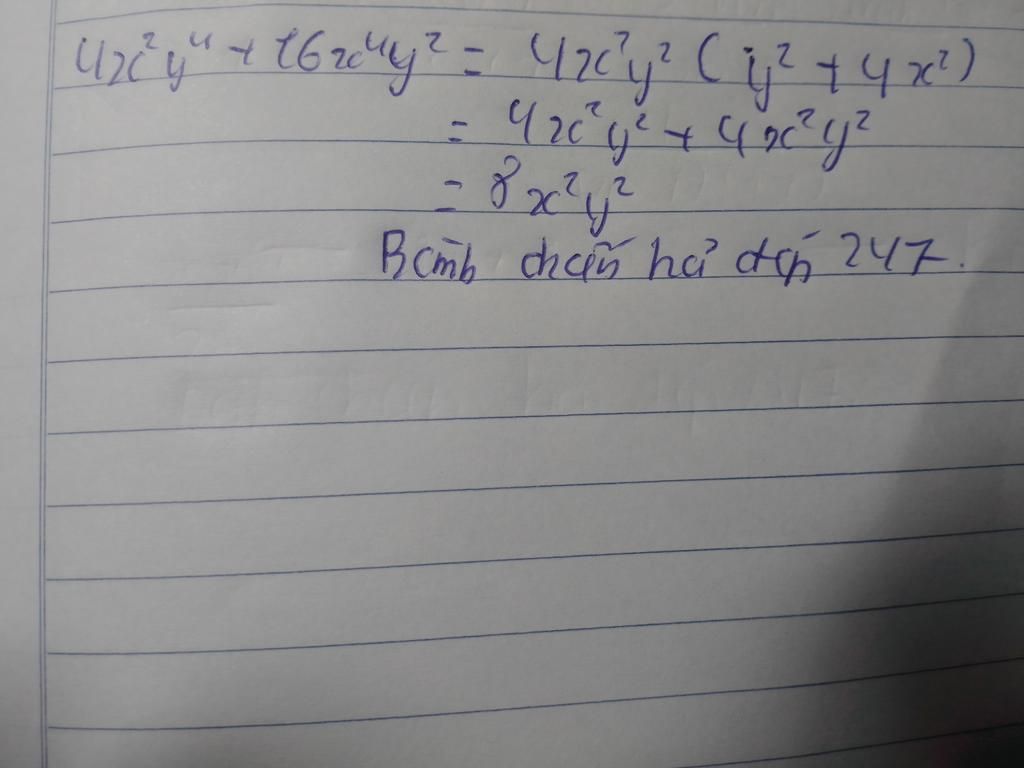 4x²y⁴ + 16x⁴y² = 4x²y² (y² + 4x²)
= 4x²y² + 4x²y²
= 8x²y²
Bình chấn hỏi đáp 247.